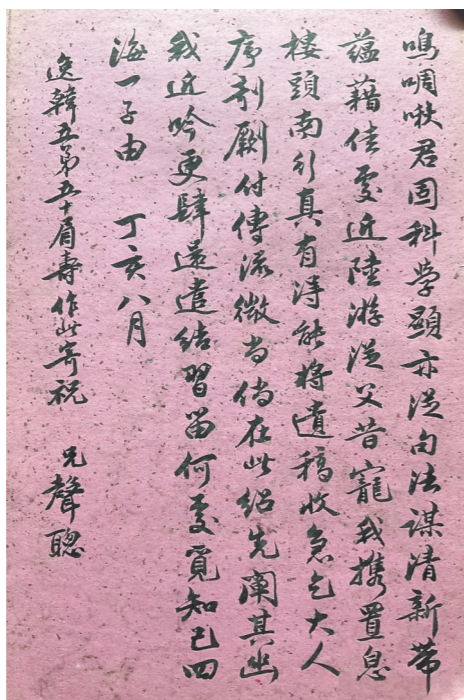 鳴啁啾君固科学顯亦從句法謀清新帶
蘊藉佳處近陸游從父昔寵我攜置息
樓頭南行真有得能將遺稿收急乞大人
序剞劂付傳流微尚倘在此紹先闡其幽
我近吟更肆還遣結習留何處覓知己四
海一子由 丁亥八月
逸韓五弟五十眉壽作此寄祝 兄聲聰